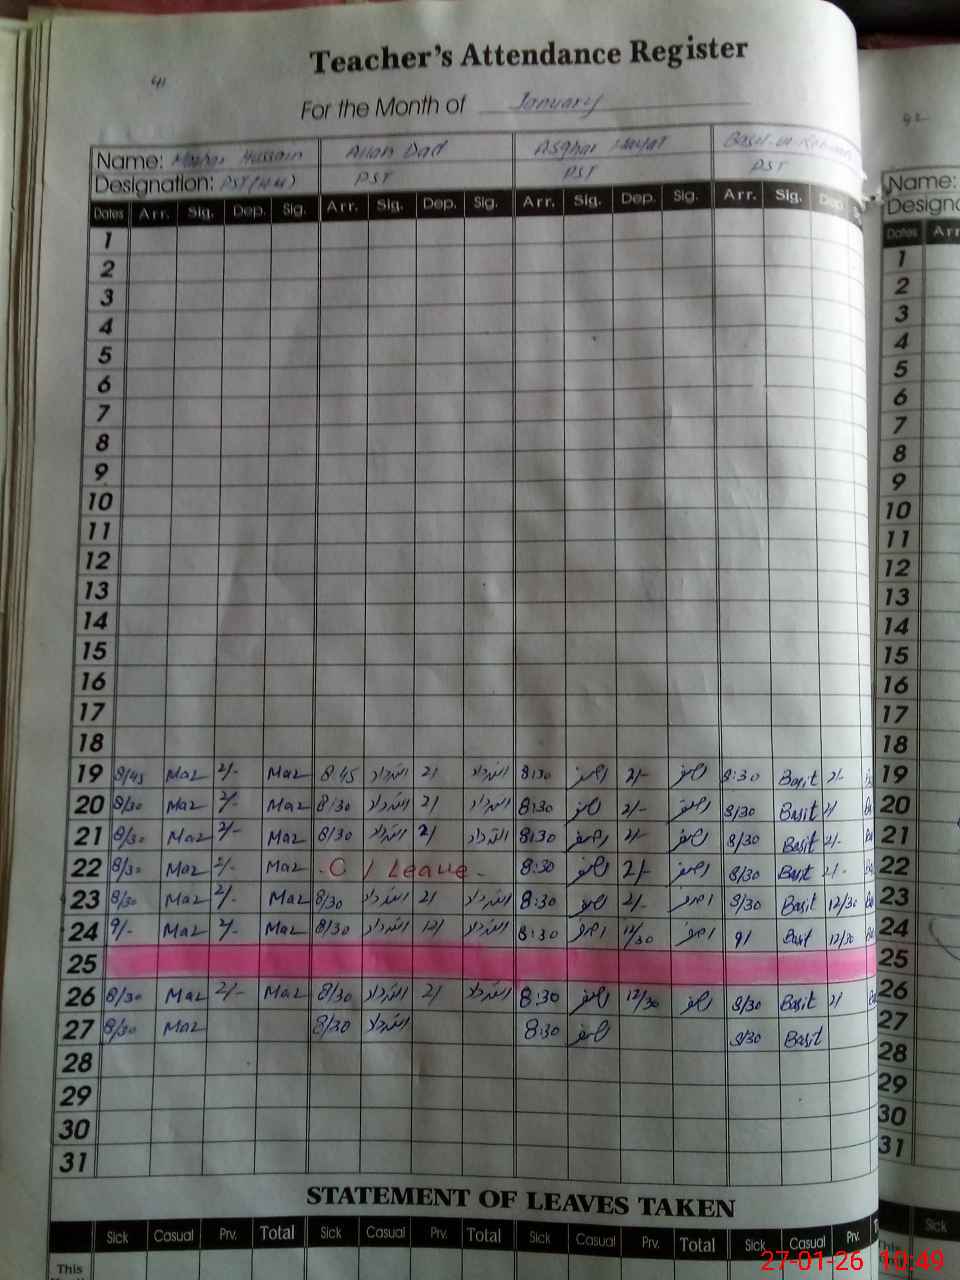 Teacher's Attendance Register
41
For the Month of January
92
Name: Mazhar Hussain Allah Dad Asghar Hayat Basit-ur-Rehman Name:
Designation: PST (H.M) PST PST PST
Dates Arr. Sig. Dep. Sig. Arr. Sig. Dep. Sig. Arr. Sig. Dep. Sig. Arr. Sig. Dep. Dates Arr
1 1
2 2
3 3
4 4
5 5
6 6
7 7
8 8
9 9
10 10
11 11
12 12
13 13
14 14
15 15
16 16
17 17
18 18
19 8/45 Maz 2/- Maz 8:45 اللہ داد 2/ اللہ داد 8:30 اصغر 2/- اصغر 8:30 Basit 2/- 19
20 8/30 Maz 2/- Maz 8/30 اللہ داد 2/ اللہ داد 8:30 اصغر 2/- اصغر 8/30 Basit 2/ 20
21 8/30 Maz 2/- Maz 8/30 اللہ داد 2/ اللہ داد 8:30 اصغر 2/- اصغر 8/30 Basit 2/- 21
22 8/30 Maz 2/- Maz C / Leave 8:30 اصغر 2/- اصغر 8/30 Basit 2/- 22
23 8/30 Maz 2/- Maz 8/30 اللہ داد 2/ اللہ داد 8:30 اصغر 2/- اصغر 8/30 Basit 12/30 23
24 9/- Maz 2/- Maz 8/30 اللہ داد 12/ اللہ داد 8:30 اصغر 11/30 اصغر 9/ Basit 12/30 24
25 25
26 8/30 Maz 2/- Maz 8/30 اللہ داد 2/ اللہ داد 8:30 اصغر 12/30 اصغر 8/30 Basit 2/ 26
27 8/30 Maz 8/30 اللہ داد 8:30 اصغر 8/30 Basit 27
28 28
29 29
30 30
31 31
STATEMENT OF LEAVES TAKEN
Sick Casual Prv. Total Sick Casual Prv. Total Sick Casual Prv. Total Sick Casual Prv. Sick
This
27-01-26 10:49